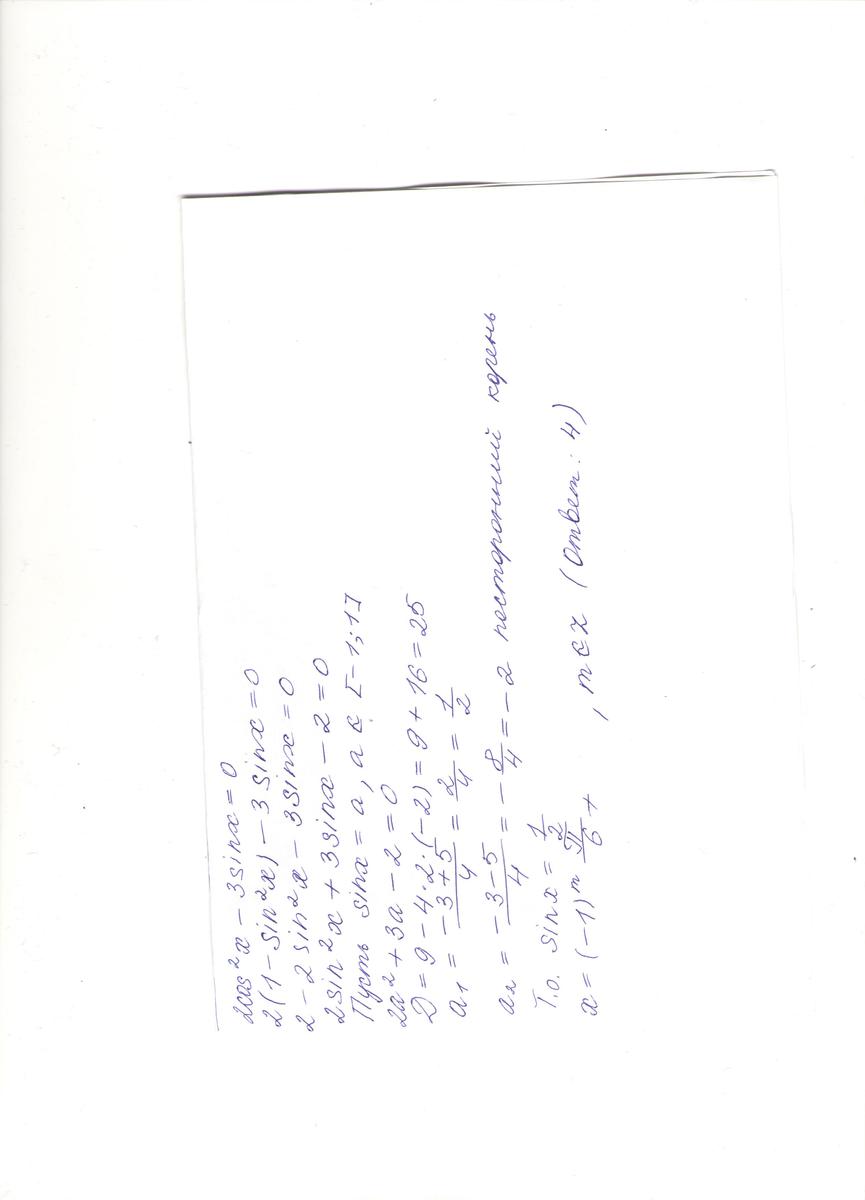 2cos²x - 3sinx = 0
2(1 - sin²x) - 3sinx = 0
2 - 2sin²x - 3sinx = 0
2sin²x + 3sinx - 2 = 0
Пусть sinx = a, a ∈ [-1; 1]
2a² + 3a - 2 = 0
D = 9 - 4·2·(-2) = 9 + 16 = 25
a₁ = (-3+5)/4 = 2/4 = 1/2
a₂ = (-3-5)/4 = -8/4 = -2 посторонний корень
Т.о. sinx = 1/2
x = (-1)ᵐ π/6 + , m ∈ Z (Ответ: 4)